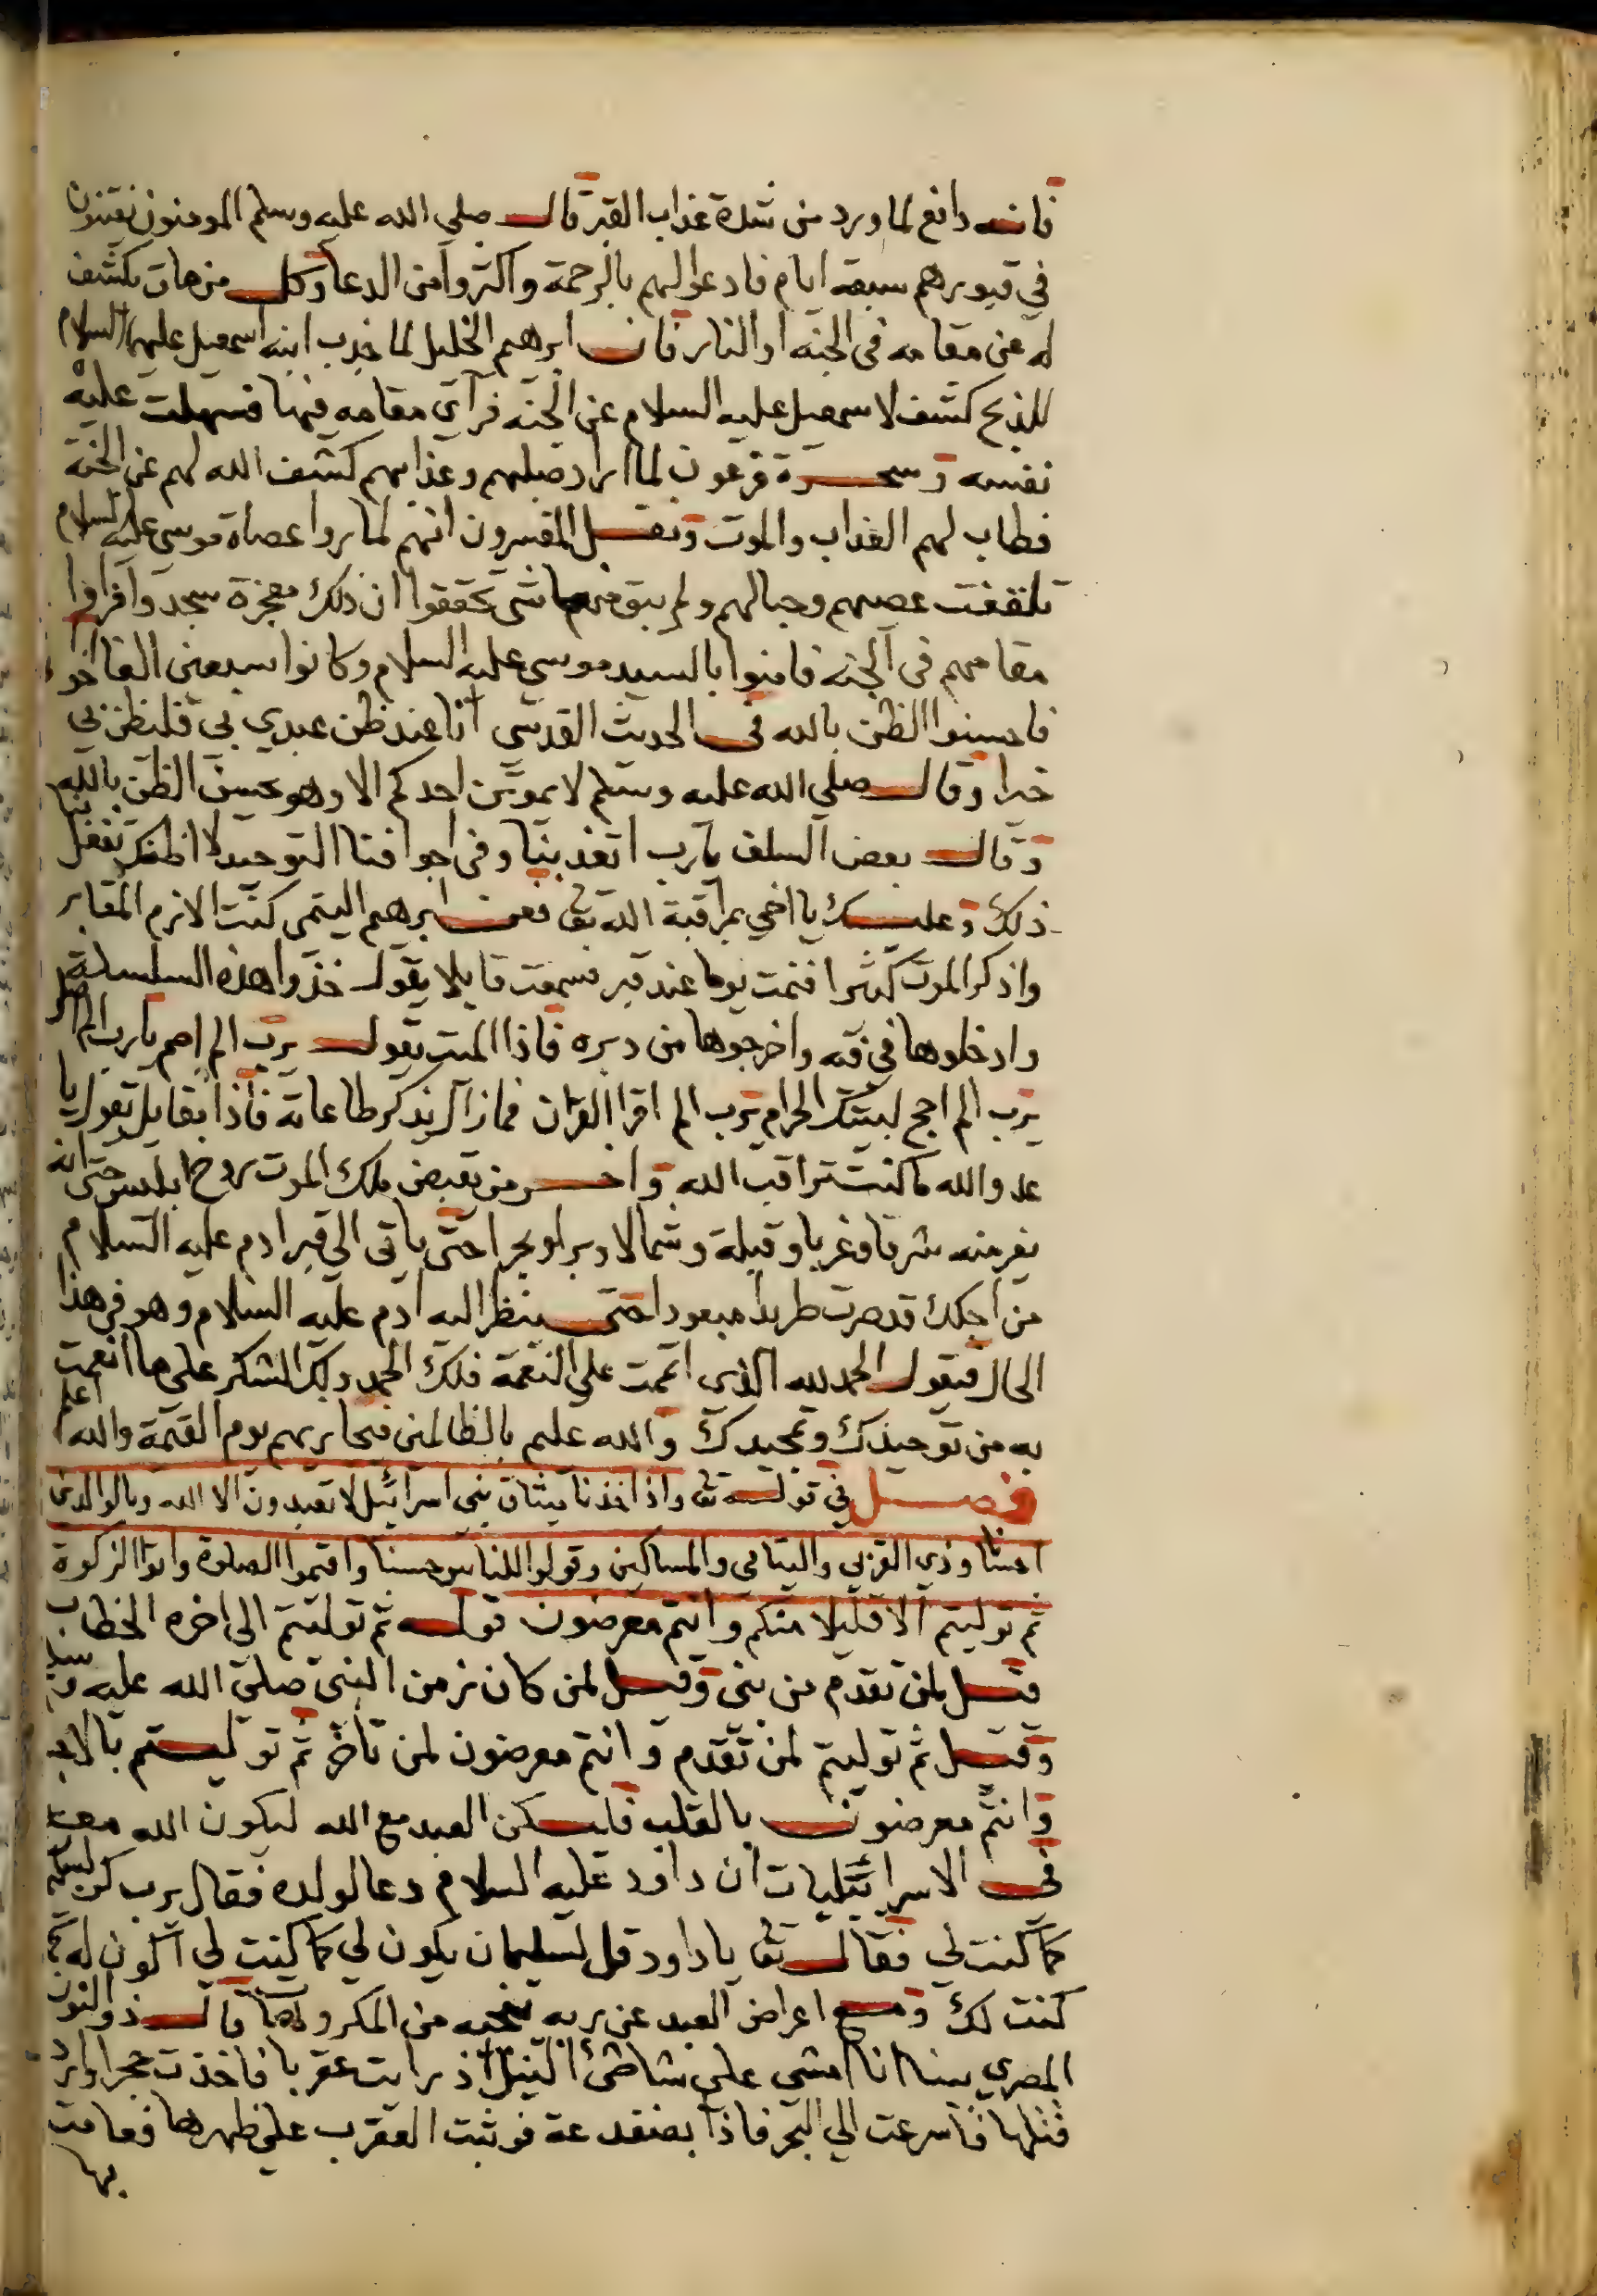 فانه دافع لما ورد من شدة عذاب القبر قال صلي الله عليه وسلم المومنون يفتنون
في قبورهم سبعة ايام فادعوا لهم بالرحمة واكثروا من الدعا وكل من مات يكشف
له عن مقامه في الجنه او النار فان ابرهيم الخليل لما جذب ابنه اسمعيل عليهما السلام
للذبح كشف لاسمعيل عليه السلام عن الجنه فرآي مقامه فيها فسهلت عليه
نفسه وسحرة فرعون لما اراد صلبهم وعذابهم كشف الله لهم عن الجنة
فطاب لهم العذاب والموت ونقل المفسرون انهم لما روا عصاة موسي عليه السلام
تلقفت عصيهم وحبالهم ولم يبق منها شي تحققوا ان ذلك معجزة سجدوا فراوا
مقامهم في الجنه فامنوا بالسيد موسي عليه السلام وكانوا سبعين الفا
فاحسنوا الظن بالله في الحديث القدسي انا عند ظن عبدي بي فليظن بي
خيرا وقال صلي الله عليه وسلم لا يموتن احدكم الا وهو يحسن الظن بالله
وقال بعض السلف يارب اتعذبنا وفي اجوافنا التوحيد لا اظنك تفعل بنا
ذلك وعليك يا اخي بمراقبة الله تعا فعن ابرهيم التيمي كنت الازم المقابر
واذكر الموت كثيرا فنمت يوما عند قبر فسمعت قايلا يقول خذوا هذه السلسلة
وادخلوها في فمه واخرجوها من دبره فاذا الميت يقول يرب الم اصم يارب الم اصل
يرب الم احج لبيتك الحرام يرب الم اقرا القران فما زال يذكر طاعاته فاذا بقايل يقول يا
عدو الله ما كنت تراقب الله واخر من يقبض ملك الموت روح ابليس حتي انه
يفر منه شرقا وغربا وقبلة وشمالا وبرا وبحرا حتي ياتي الي قبر ادم عليه السلام
من اجلك قد صرت طريدا مبعودا حتي ينظر اليه ادم عليه السلام وهو في هذا
الحال فيقول الحمد لله الذي اتممت علي النعمة فلك الحمد ولك الشكر علي ما انعمت
به من توحيدك وتمجيدك والله عليم بالظالمين فيجازيهم يوم القيمة والله اعلم
فصل في قوله تعا واذ اخذنا ميثاق بني اسرائيل لا تعبدون الا الله وبالوالدين
احسانا وذي القربي واليتامي والمساكين وقولوا للناس حسنا واقيموا الصلوة واتوا الزكوة
ثم توليتم الا قليلا منكم وانتم معرضون قوله ثم توليتم الي اخره الخطاب
قيل لمن تقدم من بني وقيل لمن كان زمن النبي صلي الله عليه وسلم
وقيل ثم توليتم لمن تقدم وانتم معرضون لمن تاخر ثم توليتم
وانتم معرضون بالقلب فليكن العبد مع الله ليكون الله معه
في الاسرائيليات ان داود عليه السلام دعا لولده فقال يرب كن لسليمان
كما كنت لي فقال تعا يا داود قل لسليمان يكون لي كما كنت لي اكون له كما
كنت لك ومع اعراض العبد عن ربه ينجيه من المكروه قال ذو النون
المصري بينا انا امشي علي شاطئ النيل اذ رايت عقربا فاخذت حجرا لارد
قتلها فاسرعت الي البحر فاذا بضفدعة فوثبت العقرب علي ظهرها فعامت
بها